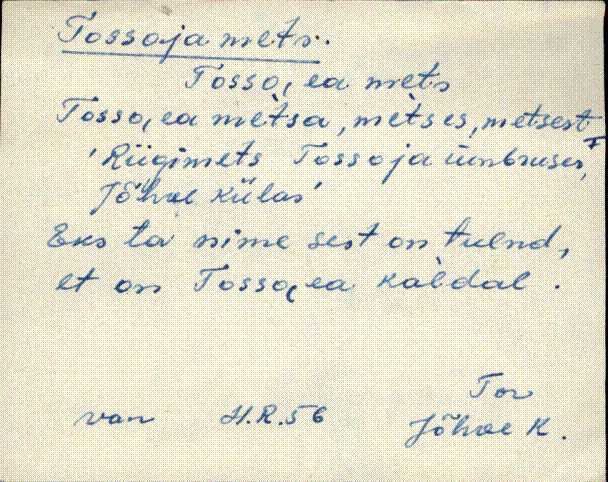 Tossoja mets.
Tosso͔ea mets
Tosso͔ea mètsa, mètses, metsest
'Riigimets Tossoja ümbruses,
Jõhve külas'
Eks ta nime sest on tulnd,
et on Tosso͔ea kaldal.
Tor
van H.R.56
Jõhve K.